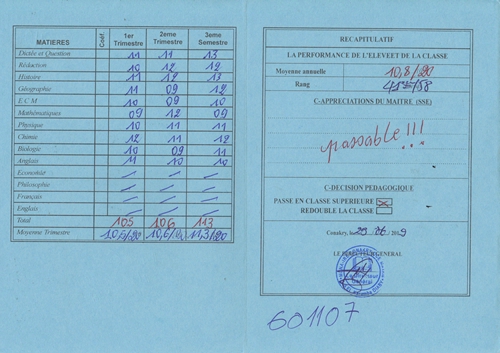 MATIERES Coéf. 1er Trimestre 2eme Trimestre 3eme Semestre
Dictée et Question 11 11 13
Rédaction 10 12 12
Histoire 11 12 13
Géographie 11 09 12
E C M 10 09 10
Mathématiques 09 12 09
Physique 10 11 11
Chimie 12 11 12
Biologie 10 09 11
Anglais 11 10 10
Economie
Philosophie
Français
Englais
Total 105 106 113
Moyenne Trimestre 10,5/20 10,6/20 11,3/20
RECAPITULATIF
LA PERFORMANCE DE L'ELEVEET DE LA CLASSE
Moyenne annuelle 10,8/20
Rang
C-APPRECIATIONS DU MAITRE (SSE)
passable!!!
C-DECISION PEDAGOGIQUE
PASSE EN CLASSE SUPERIEURE
REDOUBLE LA CLASSE
Conakry, le
LE DIRECTEUR GENERAL
601107